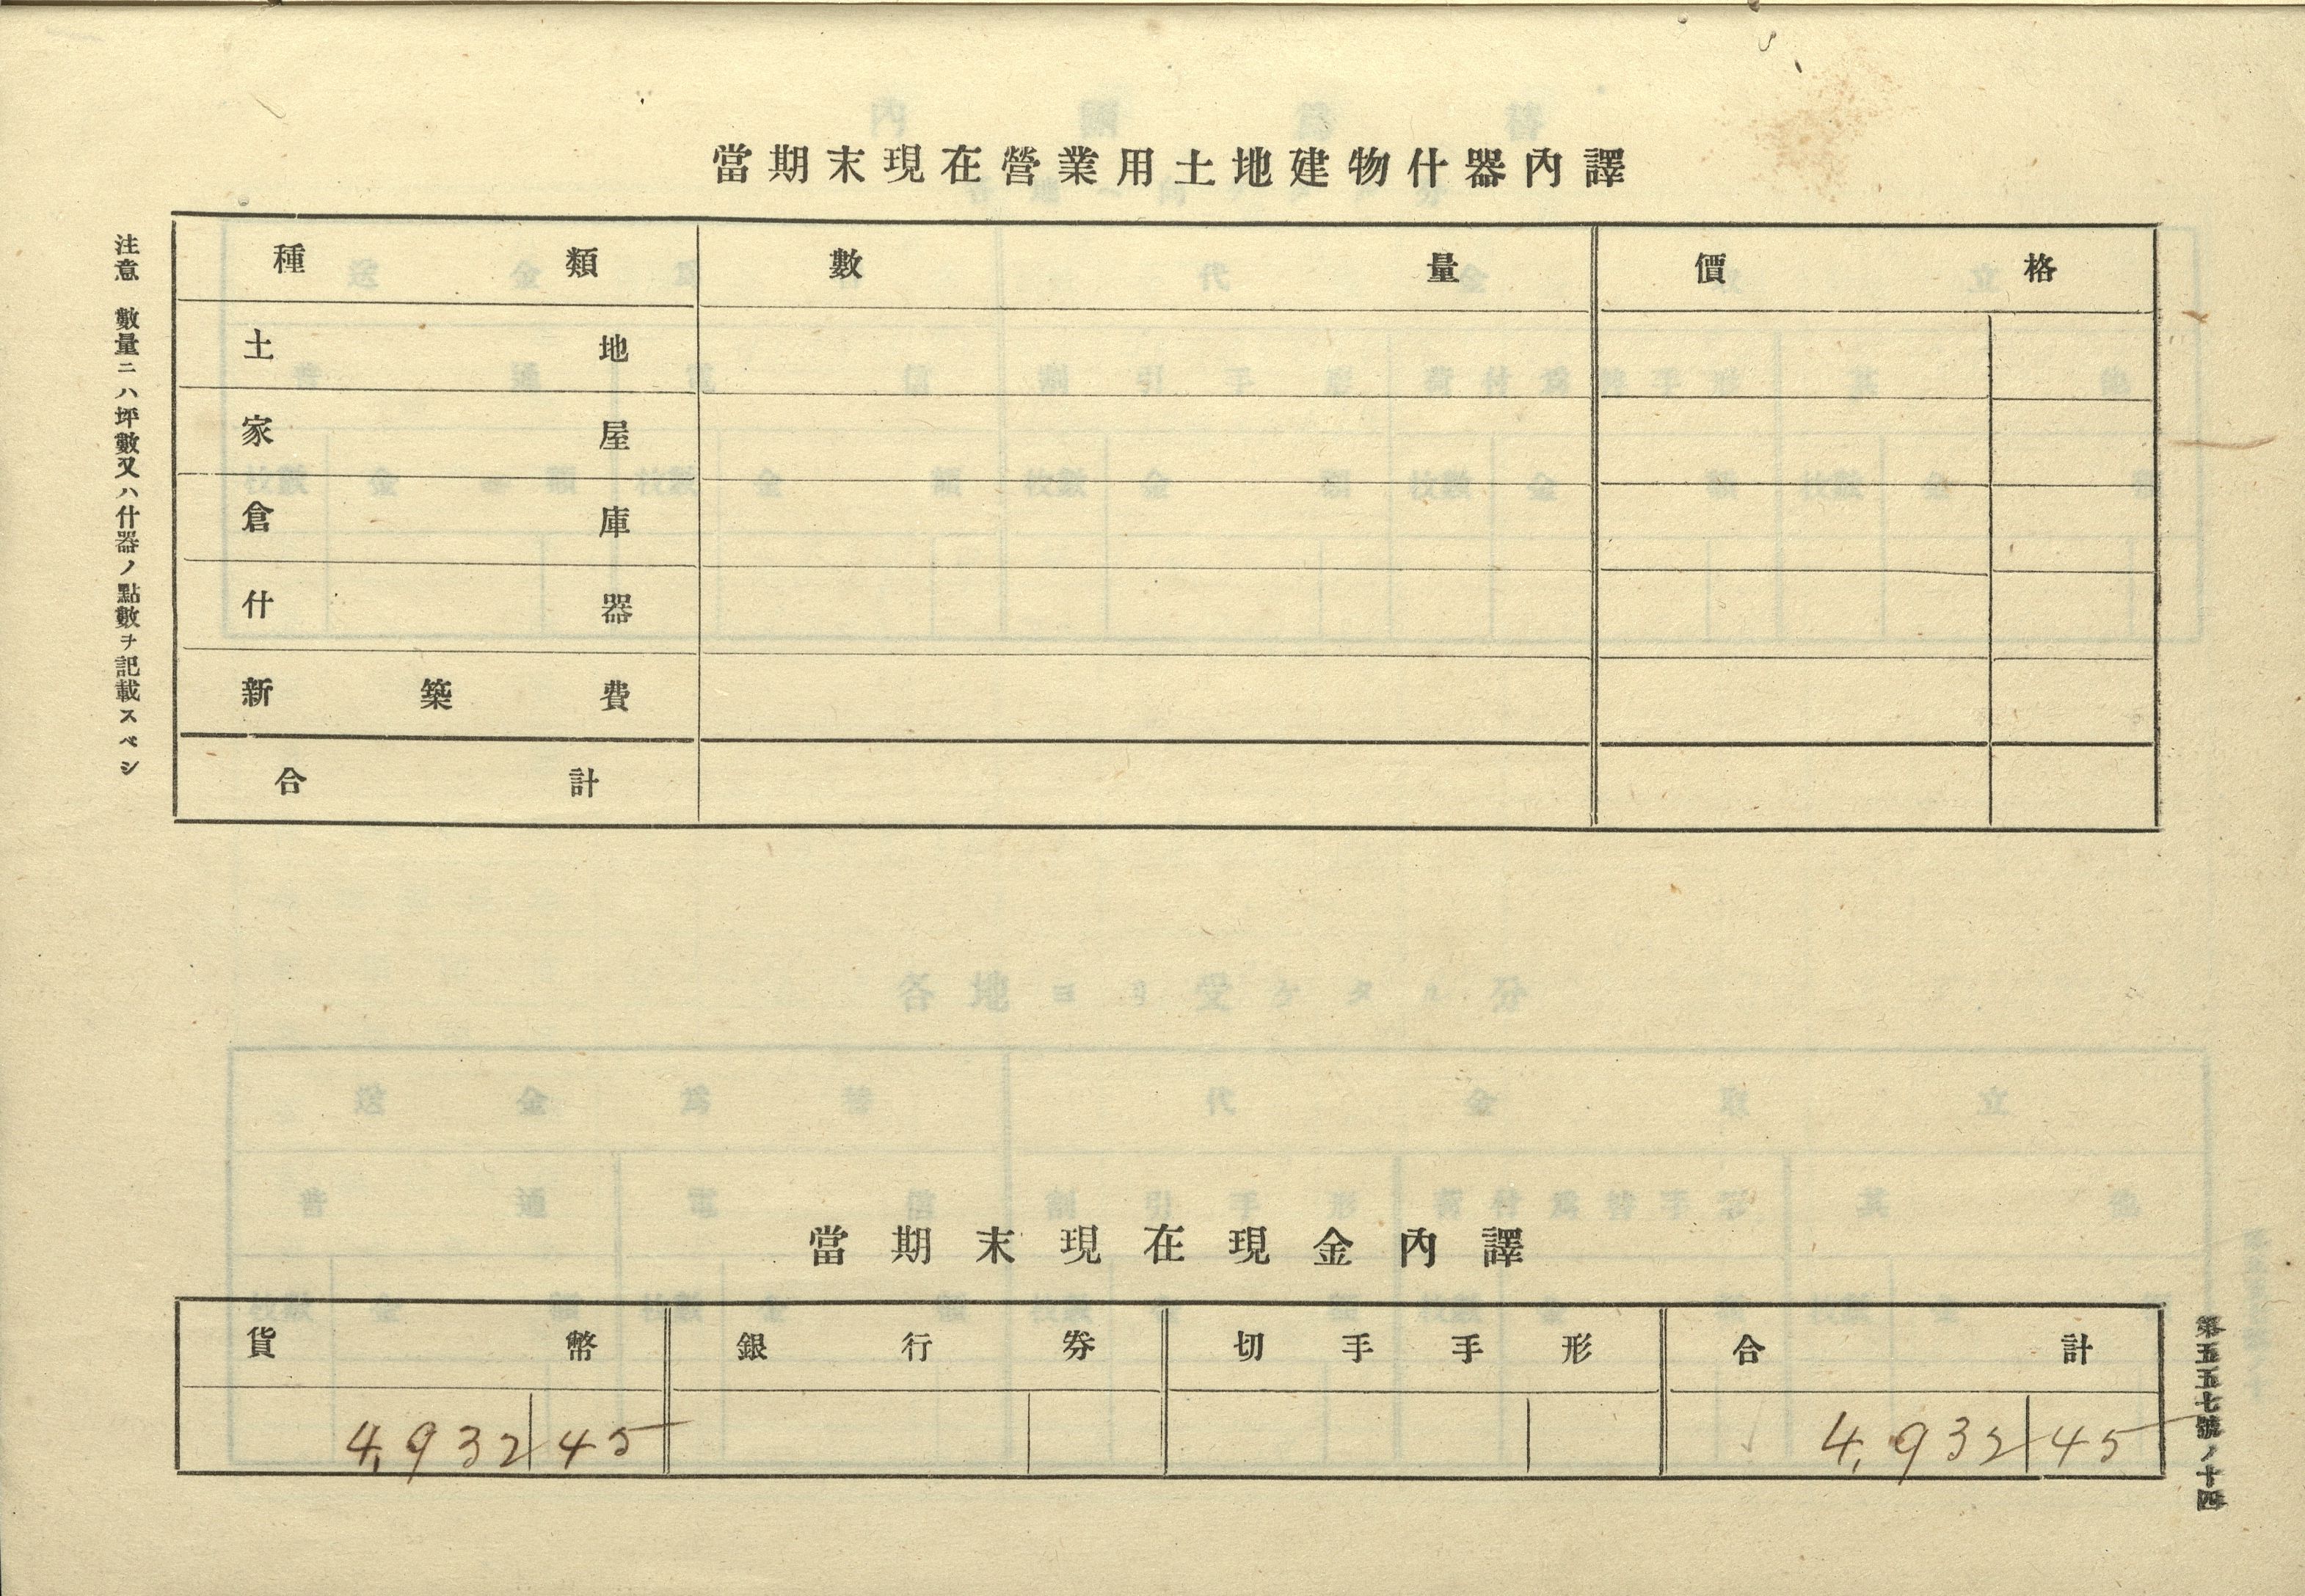 當期末現在營業用土地建物什器內譯
種類 數量 價格
土地
家屋
倉庫
什器
新築費
合計
注意 數量ニハ坪數又ハ什器ノ點數ヲ記載スベシ
當期末現在現金內譯
貨幣 銀行券 切手手形 合計
4,932 45 4,932 45
第五五七號ノ十四